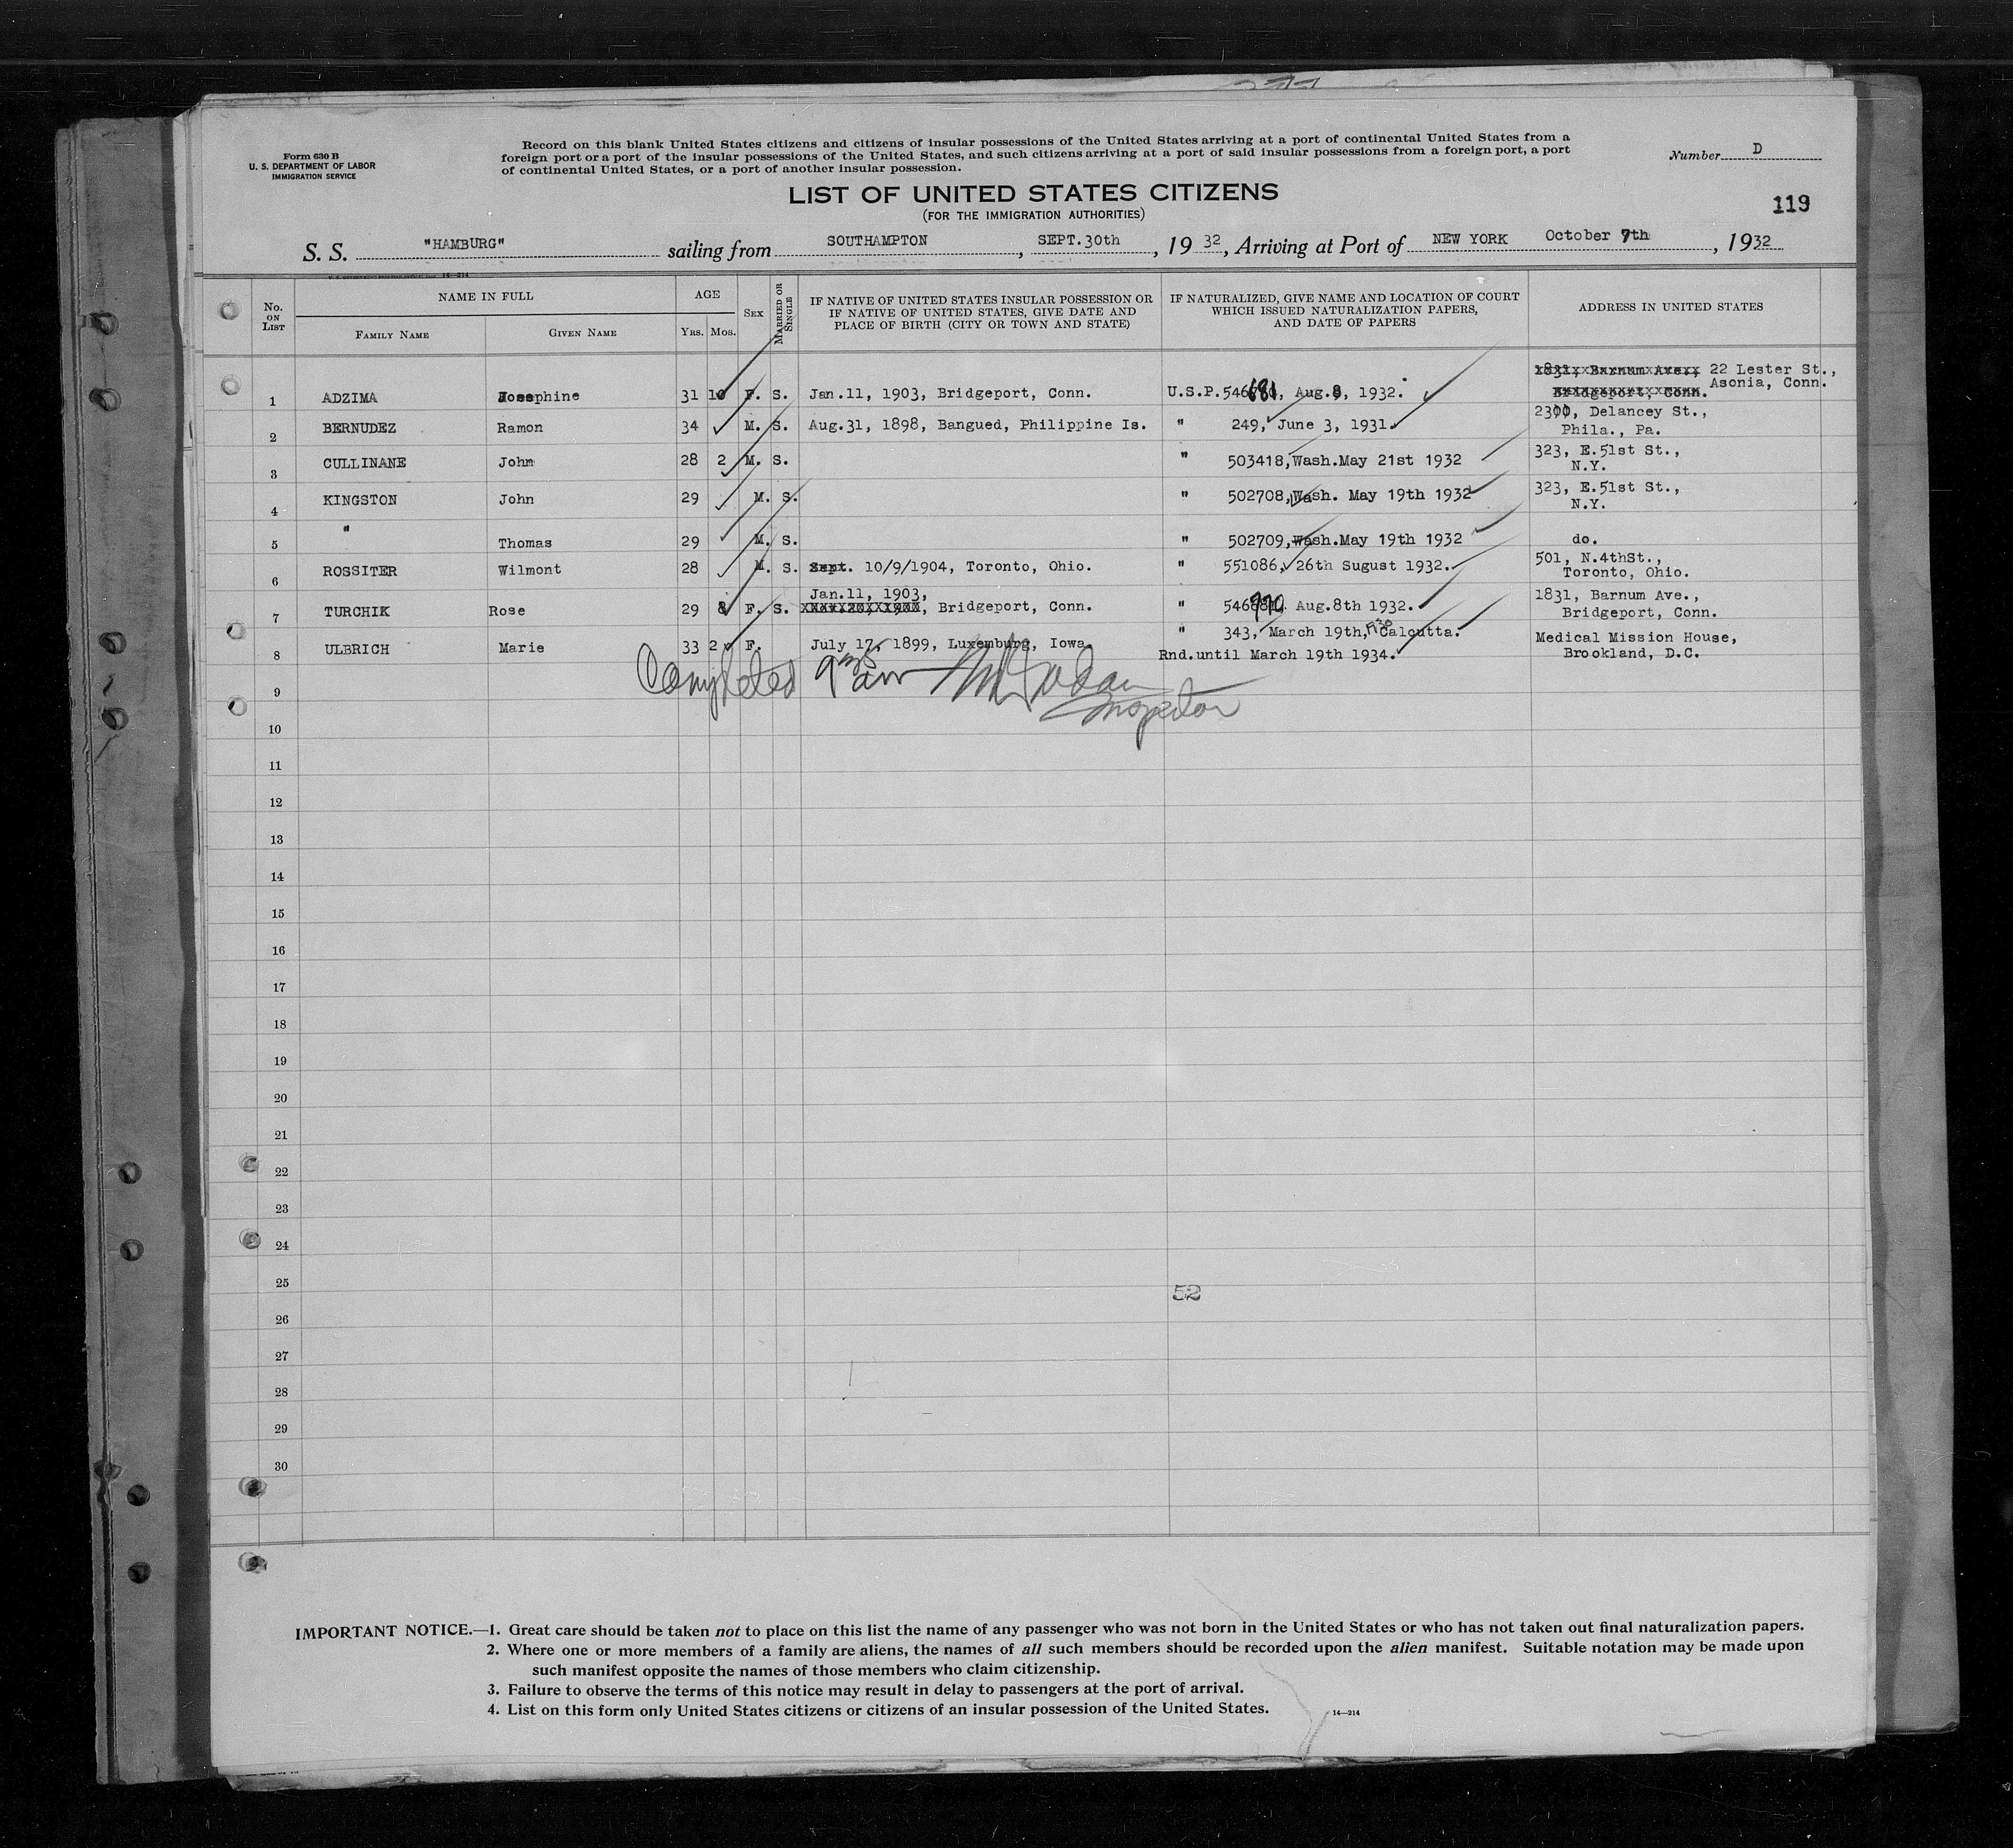 Form 630 B
U. S. DEPARTMENT OF LABOR
IMMIGRATION SERVICE
Record on this blank United States citizens and citizens of insular possessions of the United States arriving at a port of continental United States from a
foreign port or a port of the insular possessions of the United States, and such citizens arriving at a port of said insular possessions from a foreign port, a port
of continental United States, or a port of another insular possession.
Number D
LIST OF UNITED STATES CITIZENS
(FOR THE IMMIGRATION AUTHORITIES)
119
S. S. "HAMBURG" sailing from SOUTHAMPTON, SEPT.30th, 1932, Arriving at Port of NEW YORK October 7th, 1932
No. ON LIST
NAME IN FULL
FAMILY NAME
GIVEN NAME
AGE
YRS. MOS.
SEX
MARRIED OR SINGLE
IF NATIVE OF UNITED STATES INSULAR POSSESSION OR
IF NATIVE OF UNITED STATES, GIVE DATE AND
PLACE OF BIRTH (CITY OR TOWN AND STATE)
IF NATURALIZED, GIVE NAME AND LOCATION OF COURT
WHICH ISSUED NATURALIZATION PAPERS,
AND DATE OF PAPERS
ADDRESS IN UNITED STATES
1 ADZIMA Josephine 31 10 F. S. Jan.11, 1903, Bridgeport, Conn. U.S.P. 546681, Aug.8, 1932. 1831, Barnum Ave., 22 Lester St.,
Bridgeport, Conn. Asonia, Conn.
2 BERNUDEZ Ramon 34 M. S. Aug.31, 1898, Bangued, Philippine Is. " 249, June 3, 1931. 2300, Delancey St.,
Phila., Pa.
3 CULLINANE John 28 2 M. S. " 503418,Wash.May 21st 1932 323, E.51st St.,
N.Y.
4 KINGSTON John 29 M. S. " 502708,Wash. May 19th 1932 323, E.51st St.,
N.Y.
5 " Thomas 29 M. S. " 502709,Wash.May 19th 1932 do.
6 ROSSITER Wilmont 28 M. S. Sept. 10/9/1904, Toronto, Ohio. " 551086, 26th Sugust 1932. 501, N.4thSt.,
Toronto, Ohio.
Jan.11, 1903,
7 TURCHIK Rose 29 8 F. S. , Bridgeport, Conn. " 546970, Aug.8th 1932. 1831, Barnum Ave.,
Bridgeport, Conn.
8 ULBRICH Marie 33 2 F. July 17, 1899, Luxemburg, Iowa. " 343, March 19th, 1930 Calcutta. Medical Mission House,
Rnd.until March 19th 1934. Brookland, D.C.
Completed
Inspector
9
10
11
12
13
14
15
16
17
18
19
20
21
22
23
24
25
52
26
27
28
29
30
IMPORTANT NOTICE.—1. Great care should be taken not to place on this list the name of any passenger who was not born in the United States or who has not taken out final naturalization papers.
2. Where one or more members of a family are aliens, the names of all such members should be recorded upon the alien manifest. Suitable notation may be made upon
such manifest opposite the names of those members who claim citizenship.
3. Failure to observe the terms of this notice may result in delay to passengers at the port of arrival.
4. List on this form only United States citizens or citizens of an insular possession of the United States.
14—214